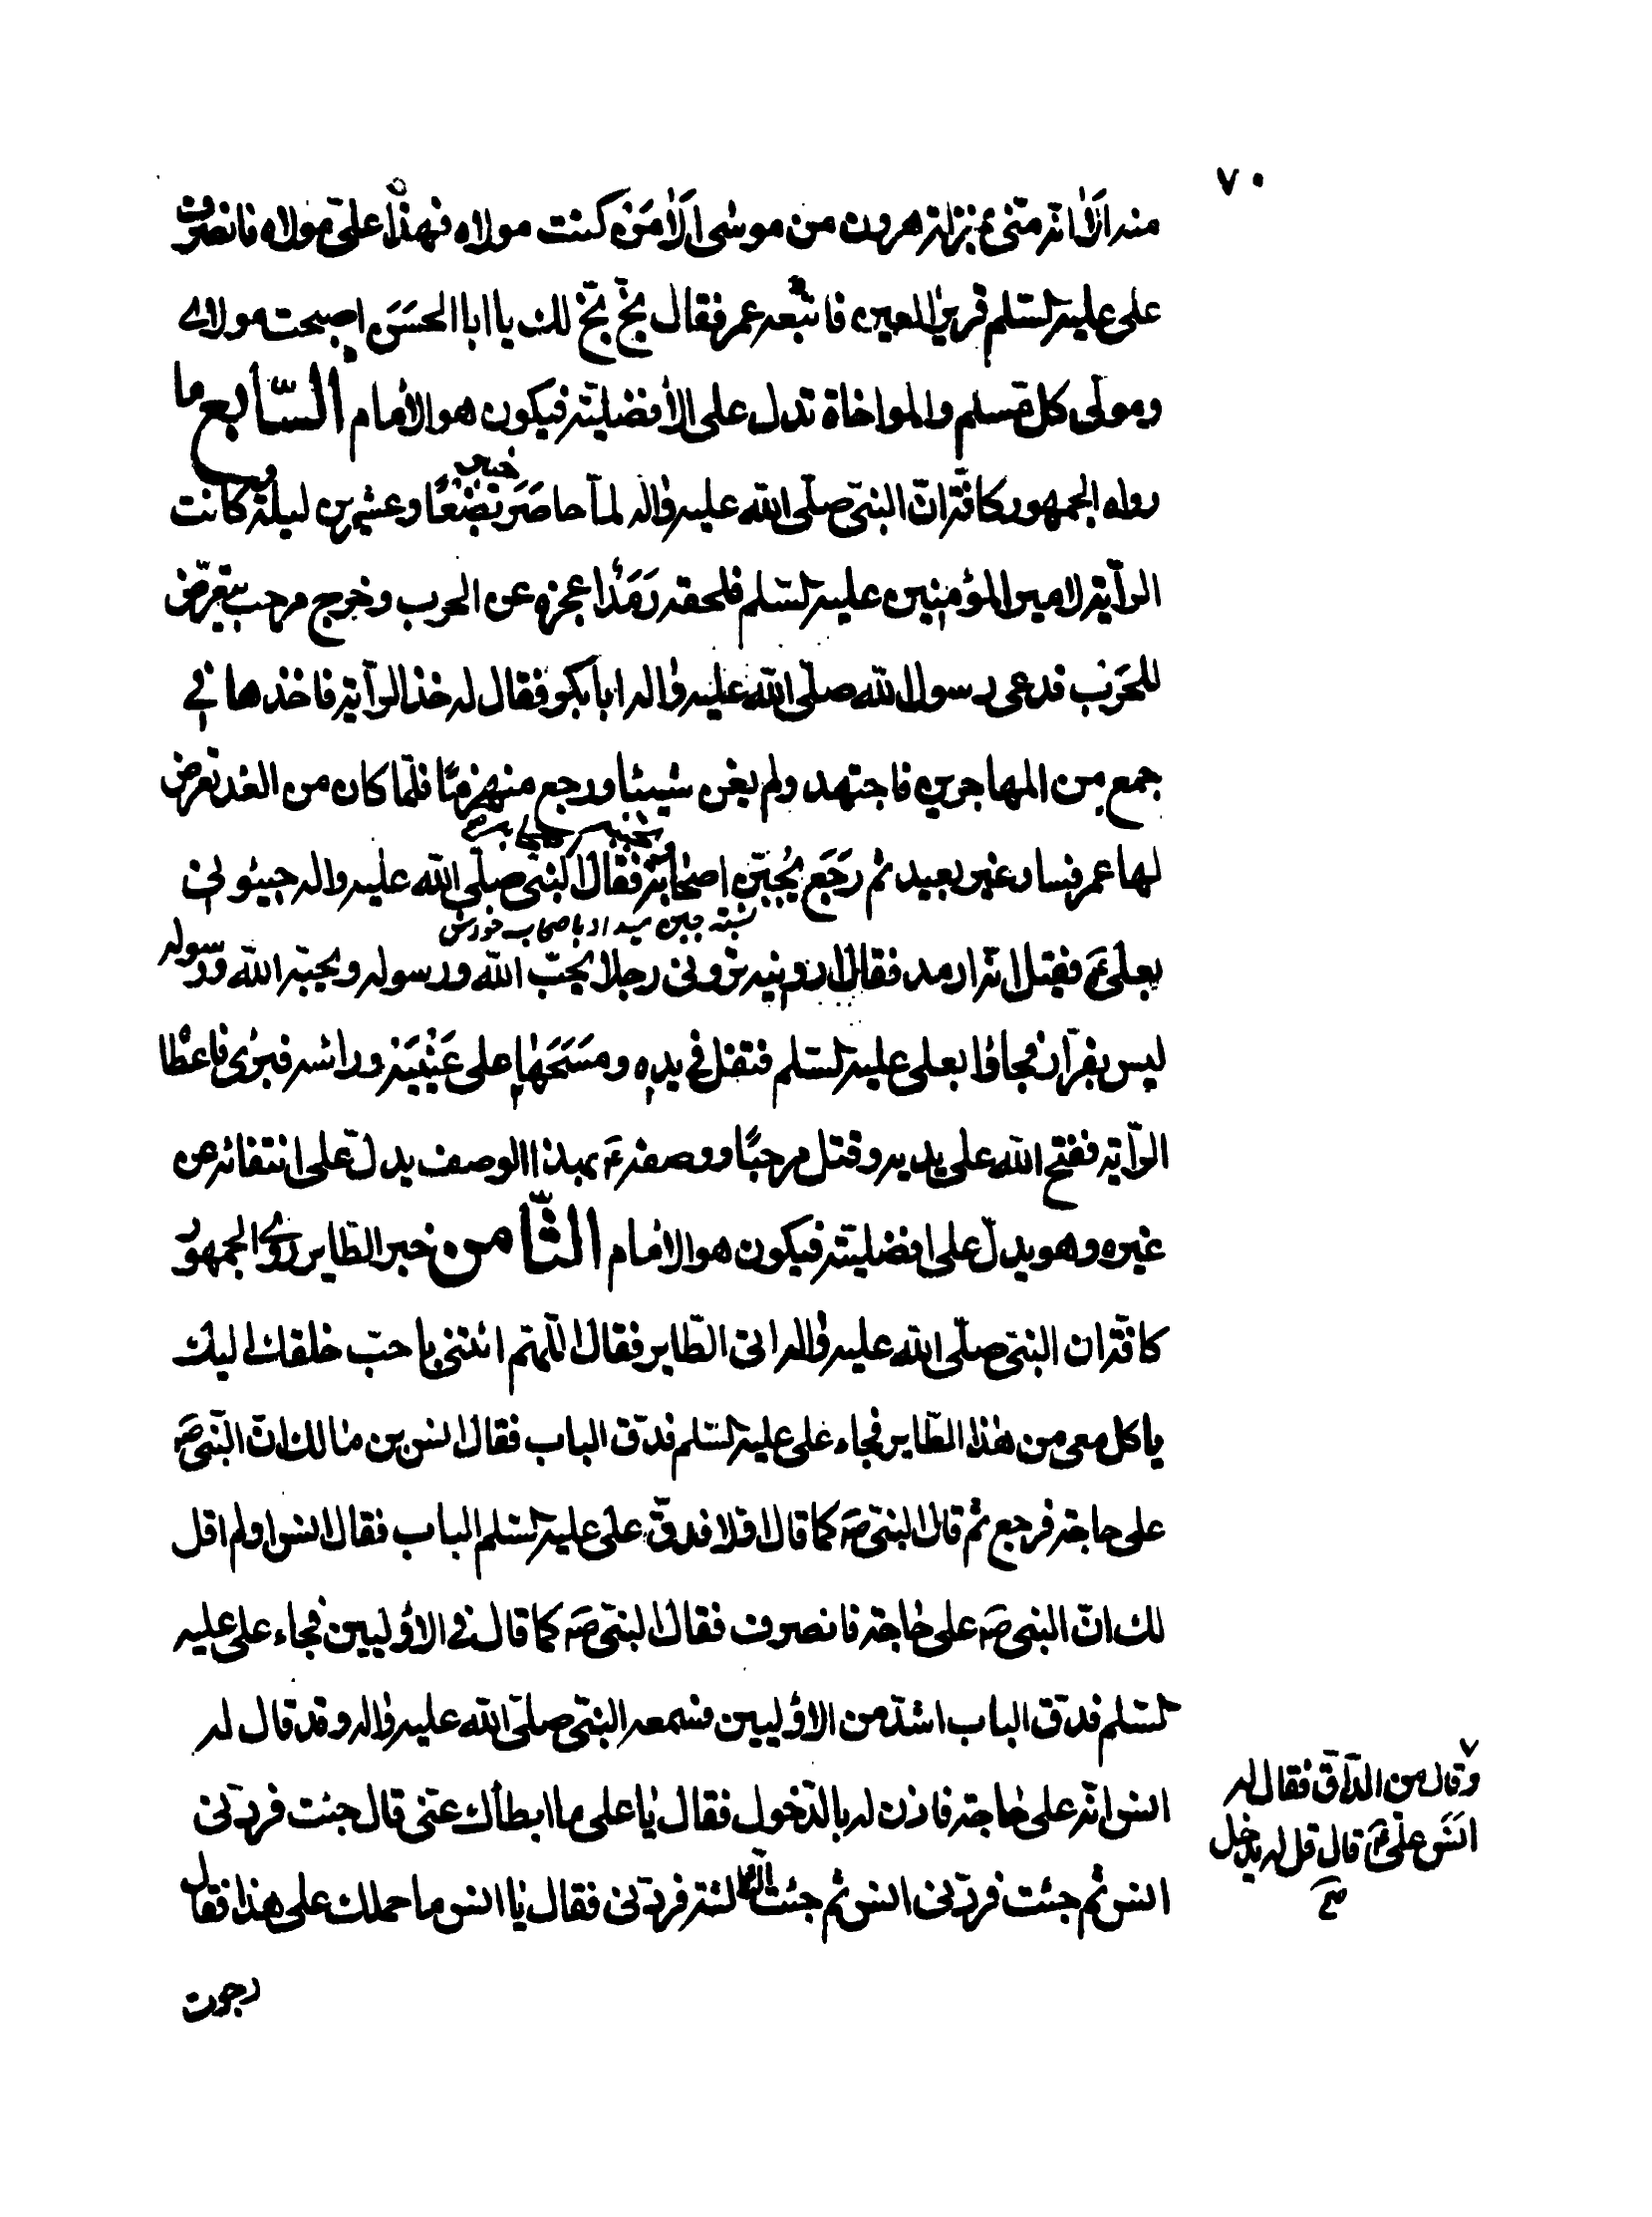 ٧٠
منه الا انه منى بمنزلة هرون من موسى الا من كنت مولاه فهذا على مولاه فانصرف
على عليه السلم قرير العين فاتبعه عمر فقال بخ بخ لك يا ابا الحسن اصبحت مولاى
ومولى كل مسلم والمواخاة تدل على الافضلية فيكون هو الامام السابع ما
رواه الجمهور كافة ان النبى صلى الله عليه واله لما حاصر خيبر بضعا وعشرين ليلة وكانت
الراية لامير المؤمنين عليه السلم فلحقه رمد اعجزه عن الحرب وخرج مرحب يتعرض
للحرب فدعى رسول الله صلى الله عليه واله ابا بكر فقال له خذ الراية فاخذها فى
جمع من المهاجرين فاجتهد ولم يغن شيئا ورجع منهزما فلما كان من الغد تعرض
لها عمر فسار غير بعيد ثم رجع يجبن اصحابه فقال النبى صلى الله عليه واله جيئونى
نسبة جبن ميداد باصحاب خودش
بعلى ع فقيل انه ارمد فقال ارونيه ترونى رجلا يحب الله ورسوله ويحبه الله ورسوله
ليس بفرار فجاؤا بعلى عليه السلم فتفل فى يده ومسحها على عينيه وراسه فبرى فاعطا
الراية ففتح الله على يديه وقتل مرحبا ووصفه ع بهذا الوصف يدل على انتفائه عن
غيره وهو يدل على افضليته فيكون هو الامام الثامن خبر الطاير روى الجمهور
كافة ان النبى صلى الله عليه واله اتى الطاير فقال اللهم ائتنى باحب خلقك اليك
ياكل معى من هذا الطاير فجاء على عليه السلم فدق الباب فقال انس بن مالك ان النبى ص
على حاجة فرجع ثم قال النبى ص كما قال اولا فدق على عليه السلم الباب فقال انس اولم اقل
لك ان النبى ص على حاجة فانصرف فقال النبى ص كما قال فى الاوليين فجاء على عليه
السلم فدق الباب اشد من الاوليين فسمعه النبى صلى الله عليه واله وقد قال له
انس انه على حاجة فاذن له بالدخول فقال يا على ما ابطأك عنى قال جئت فردنى
انس ثم جئت فردنى انس ثم جئت الثالثة فردنى فقال يا انس ما حملك على هذا فقال
وقال من الداق فقال له
انس على ع قال قل له يدخل
صح
رجوت